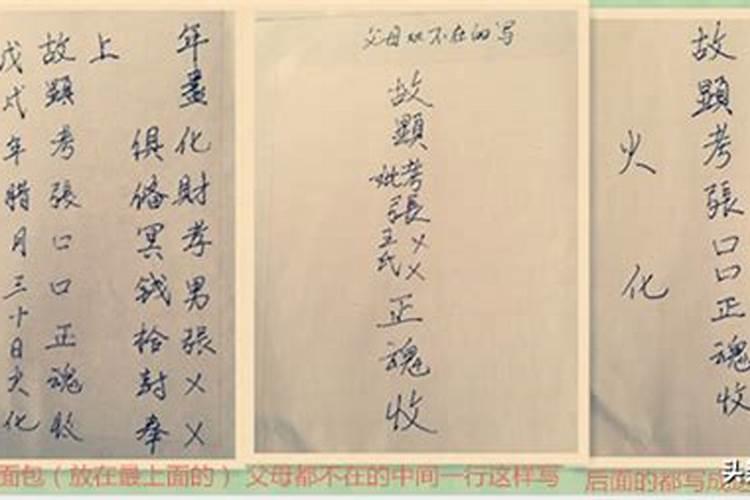 年盡化財孝男張××
俱備冥錢拾封奉
上
故顯考張口口正魂收
戊戌年腊月三十日火化
父母不在的写
故顯
考張××
妣王氏
正魂收
故顯考張口口正魂收
火化
面包（放在最上面的）
父母都不在的中间一行这样写
后面的都写成
头